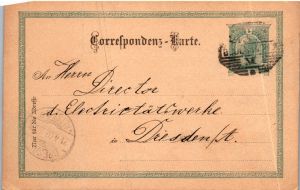 Correspondenz-Karte.
An Herrn
Director
d. Electricitätswerke
in Dresden
Nur für die Adresse